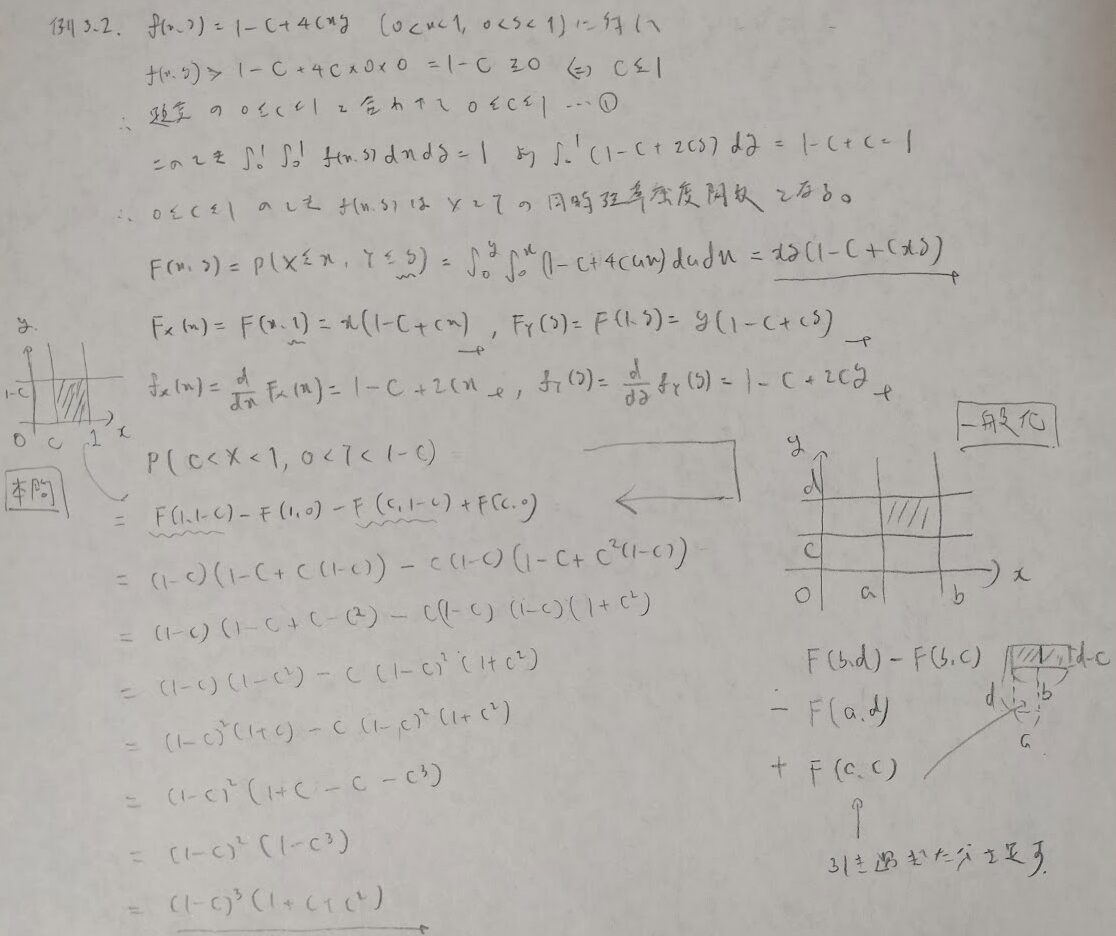 例3.2. f(x,y)=1-C+4Cxy (0<x<1, 0<y<1)に対し
f(x,y)>1-C+4C×0×0=1-C≧0 ⇔ C≦1
∴ 題意の0≦C≦1と合わせて0≦C≦1 …①
このとき ∫₀¹∫₀¹ f(x,y)dxdy=1 より ∫₀¹(1-C+2Cy)dy=1-C+C=1
∴ 0≦C≦1 のとき f(x,y)はXとYの同時確率密度関数となる。
F(x,y)=P(X≦x, Y≦y)=∫₀^y∫₀^x(1-C+4Cuv)dudv=xy(1-C+Cxy)
F_X(x)=F(x,1)=x(1-C+Cx), F_Y(y)=F(1,y)=y(1-C+Cy)
f_X(x)=d/dx F_X(x)=1-C+2Cx, f_Y(y)=d/dy f_Y(y)=1-C+2Cy
y
1-C
0 C 1 x
本問
P(C<X<1, 0<Y<1-C)
=F(1,1-C)-F(1,0)-F(C,1-C)+F(C,0)
=(1-C)(1-C+C(1-C))-C(1-C)(1-C+C²(1-C))
=(1-C)(1-C+C-C²)-C(1-C)(1-C)(1+C²)
=(1-C)(1-C²)-C(1-C)²(1+C²)
=(1-C)²(1+C)-C(1-C)²(1+C²)
=(1-C)²(1+C-C-C³)
=(1-C)²(1-C³)
=(1-C)³(1+C+C²)
一般化
y
d
C
0 a b x
F(b,d)-F(b,c)
-F(a,d)
+F(a,c)
d-c
d b
a
引き過ぎた分を足す